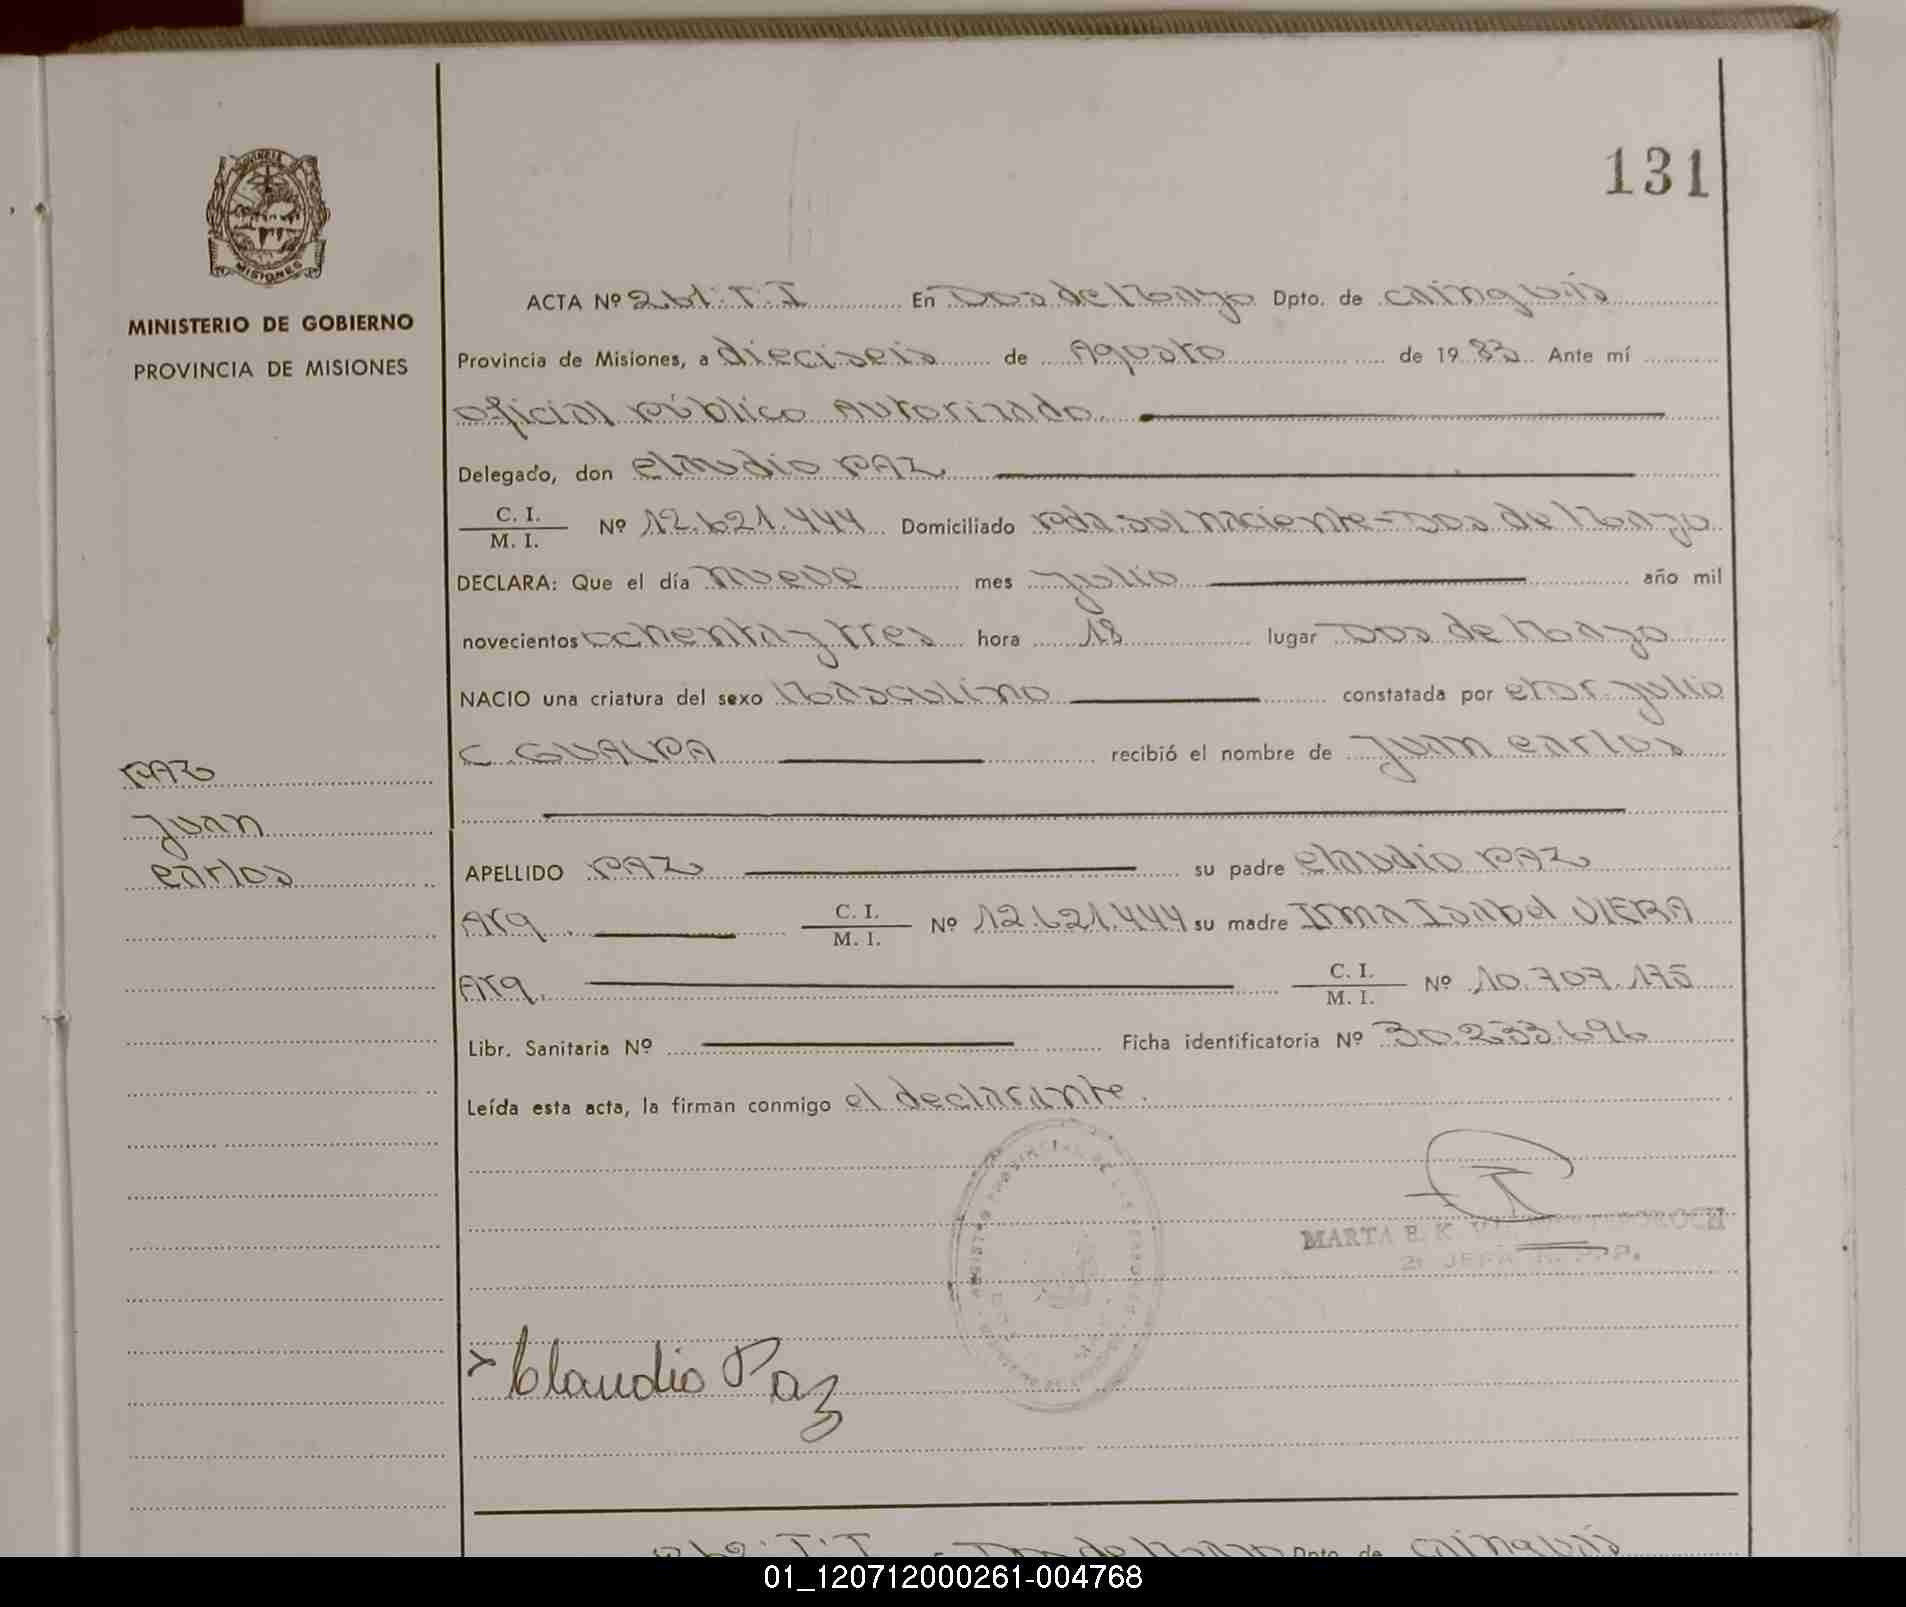 131
PROVINCIA DE
MISIONES
MINISTERIO DE GOBIERNO
PROVINCIA DE MISIONES
ACTA Nº 261·T·I En Dos de Mayo Dpto. de cainguás
Provincia de Misiones, a dieciseis de Agosto de 1983. Ante mí
oficial público Autorizado
Delegado, don claudio PAZ
C. I.
M. I. Nº 12.621.444 Domiciliado pda. sol naciente - Dos de Mayo
DECLARA: Que el día nueve mes julio año mil
novecientos ochenta y tres hora 18 lugar Dos de Mayo
NACIO una criatura del sexo Masculino constatada por julio
C. GUALPA recibió el nombre de juan carlos
PAZ
juan
carlos
APELLIDO PAZ su padre claudio PAZ
Arg. C. I.
M. I. Nº 12.621.444 su madre Irma Isabel VIERA
Arg. C. I.
M. I. Nº 10.707.175
Libr. Sanitaria Nº Ficha identificatoria Nº 30.233.696
Leída esta acta, la firman conmigo el declarante.
MARTA E. K.
Claudio Paz
Dos de Mayo Dpto. de cainguás
01_120712000261-004768